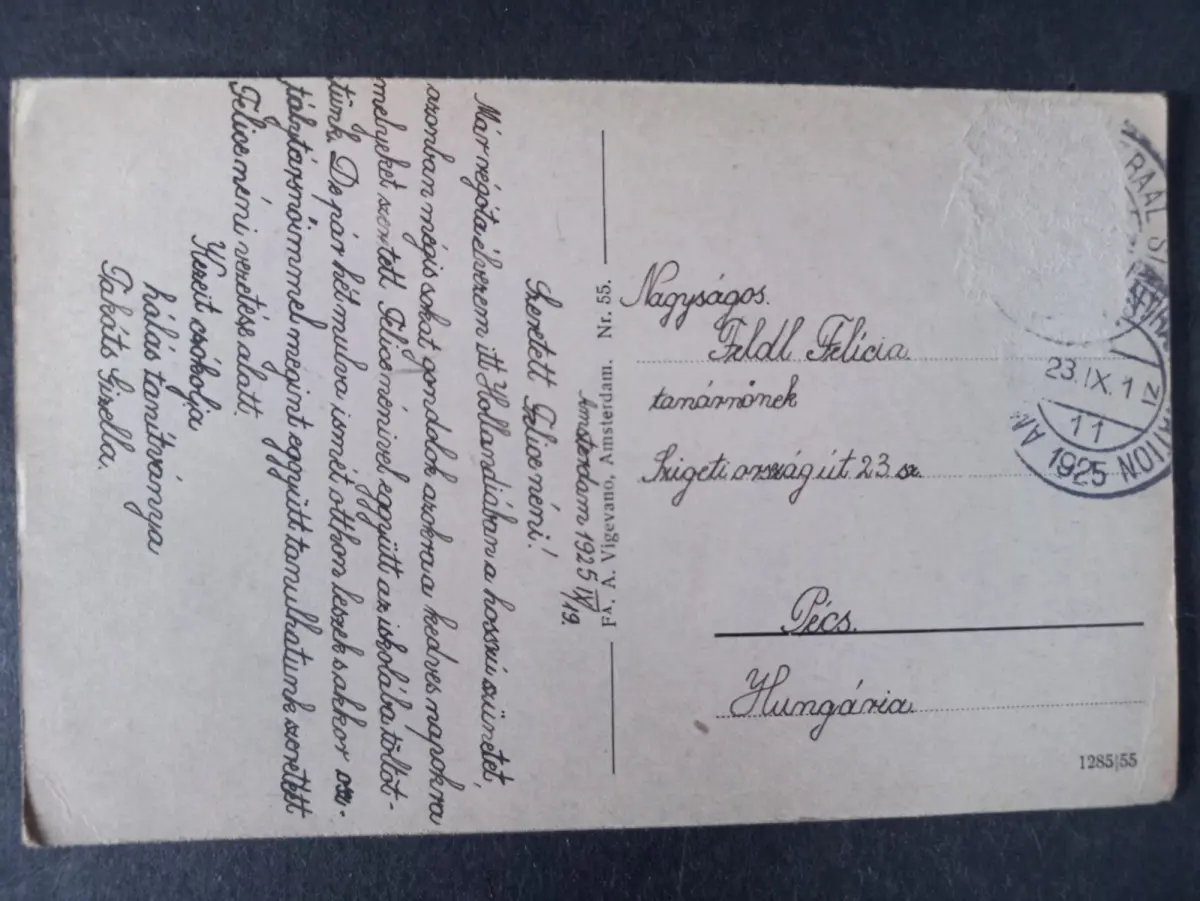 Amsterdam 1925 IX/19.
Szeretett Felice néni!
Már régóta élvezem itt Hollandiában a hosszú szünetet,
azonban mégis sokat gondolok azokra a kedves napokra
melyeket szeretett Felice nénivel együtt az iskolában töltöt-
tünk. De pár hét mulva ismét otthon leszek s akkor osz-
tálytársnőimmel megint együtt tanulhatunk szeretett
Felice néni vezetése alatt.
Kezeit csókolja
hálás tanítványa
Takáts Gizella.
FA. A. Vigevano, Amsterdam. Nr. 55.
Nagyságos
Feldl Felícia
tanárnőnek
Szigeti országút 23 sz.
Pécs.
Hungária
1285|55
23.IX.1
11
1925